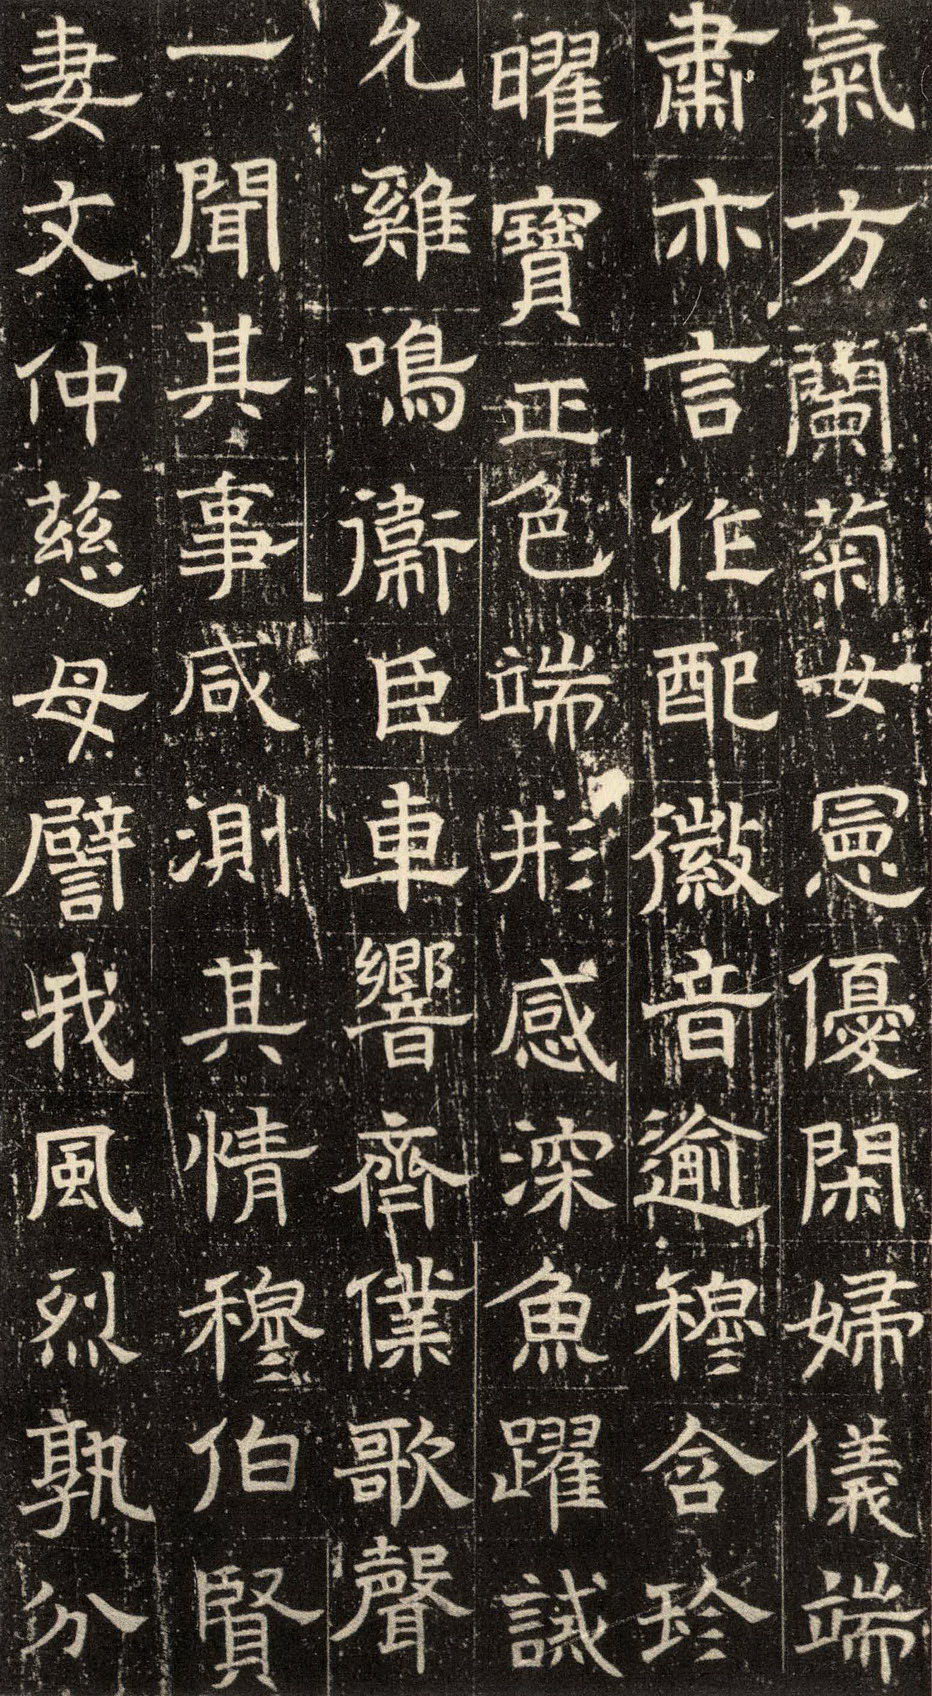 氣方蘭菊女憲優閑婦儀端
肅亦言作配徽音逾穆含珍
曜寶正色端形感深魚躍誠
允雞鳴衛臣車響齊僕歌聲
一聞其事咸測其情穆伯賢
妻文仲慈母譬我風烈孰分